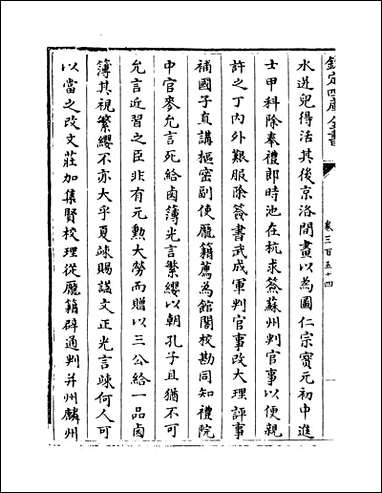 欽定四庫全書
卷三百五十四
水迸兒得活其後京洛間畫以為圖仁宗寶元初中進
士甲科除奉禮郎時池在杭求簽蘇州判官事以便親
許之丁內外艱服除簽書武成軍判官事改大理評事
補國子直講樞密副使龐籍薦為館閣校勘同知禮院
中官麥允言死給鹵簿光言繁纓以朝孔子且猶不可
允言近習之臣非有元勲大勞而贈以三公給一品鹵
簿其視繁纓不亦大乎夏竦賜諡文正光言竦何人可
以當之改文莊加集賢校理從龐籍辟通判并州麟州